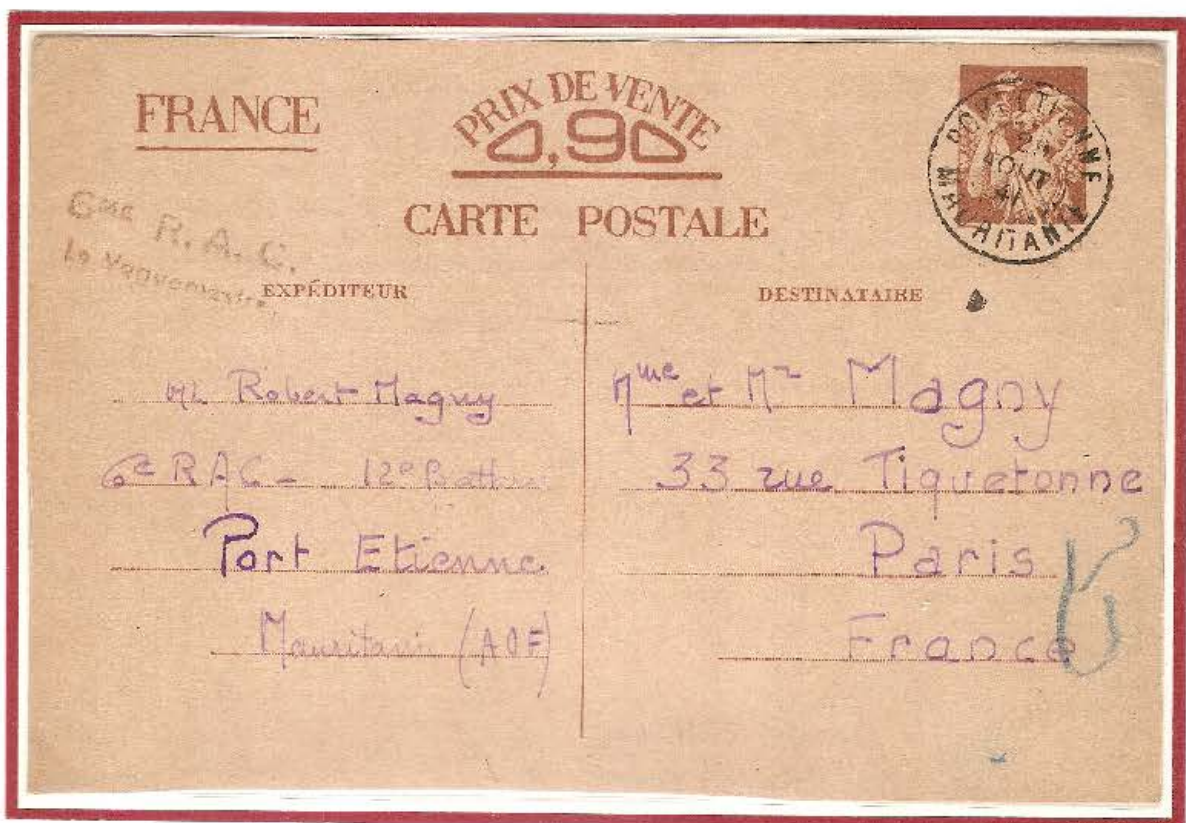 FRANCE
PRIX DE VENTE
0,90
CARTE POSTALE
PORT-ETIENNE
AOUT
41
MAURITANIE
6me R.A.C.
Le Vaguemestre
EXPÉDITEUR
DESTINATAIRE
ML Robert Magny
6e RAC - 12e Batterie
Port Etienne
Mauritanie (AOF)
Mme et Mr Magny
33 rue Tiquetonne
Paris
France